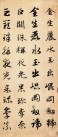 金生麗水玉出崑岡劍號
金生麗水玉出崑岡劍號
巨闕珠稱夜光果珍李柰
巨闕珠稱夜光果珍李柰